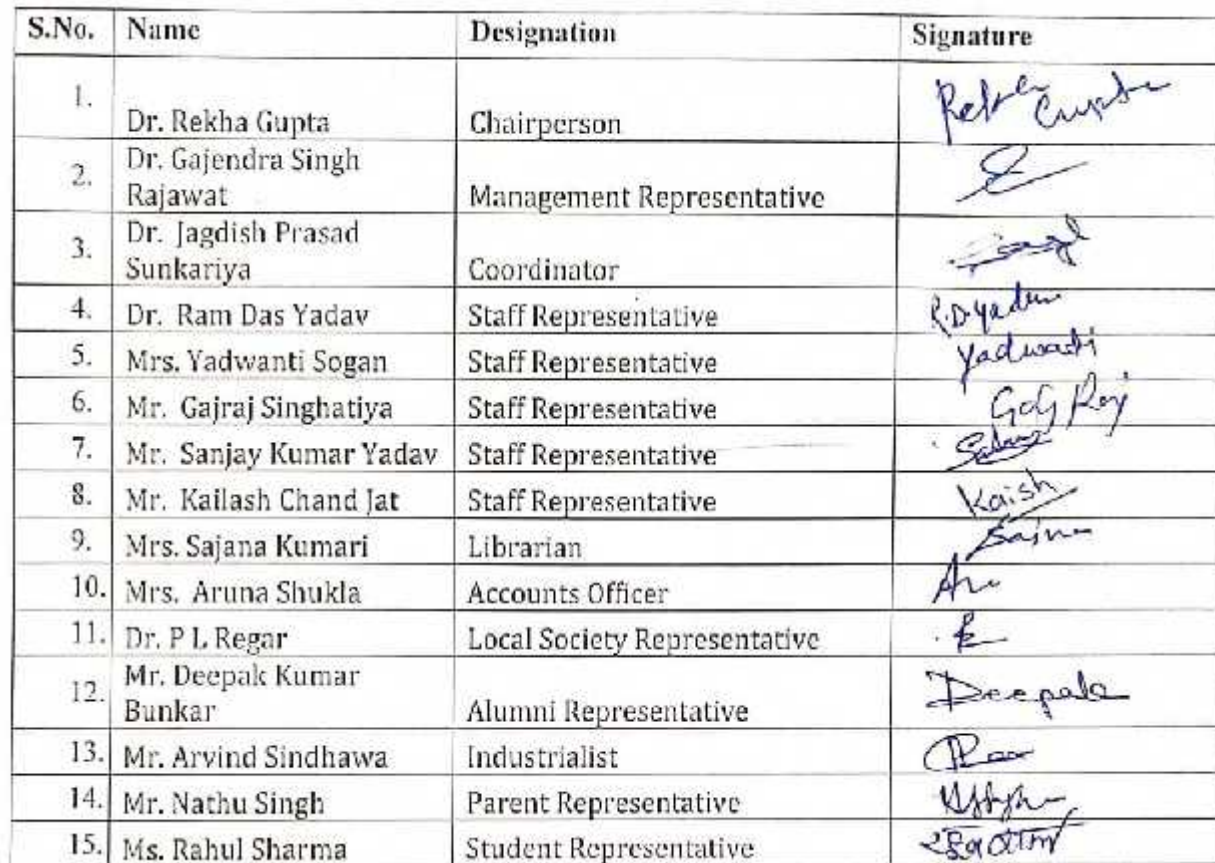 S.No. Name Designation Signature
1. Dr. Rekha Gupta Chairperson Rekha Gupta
2. Dr. Gajendra Singh
Rajawat Management Representative
3. Dr. Jagdish Prasad
Sunkariya Coordinator
4. Dr. Ram Das Yadav Staff Representative R.D.Yadav
5. Mrs. Yadwanti Sogan Staff Representative Yadwanti
6. Mr. Gajraj Singhatiya Staff Representative
7. Mr. Sanjay Kumar Yadav Staff Representative
8. Mr. Kailash Chand Jat Staff Representative Kaish
9. Mrs. Sajana Kumari Librarian
10. Mrs. Aruna Shukla Accounts Officer
11. Dr. P L Regar Local Society Representative
12. Mr. Deepak Kumar
Bunkar Alumni Representative Deepak
13. Mr. Arvind Sindhawa Industrialist
14. Mr. Nathu Singh Parent Representative
15. Ms. Rahul Sharma Student Representative